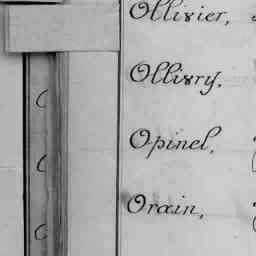 Ollivier,
Ollivry,
Opinel,
Orain,